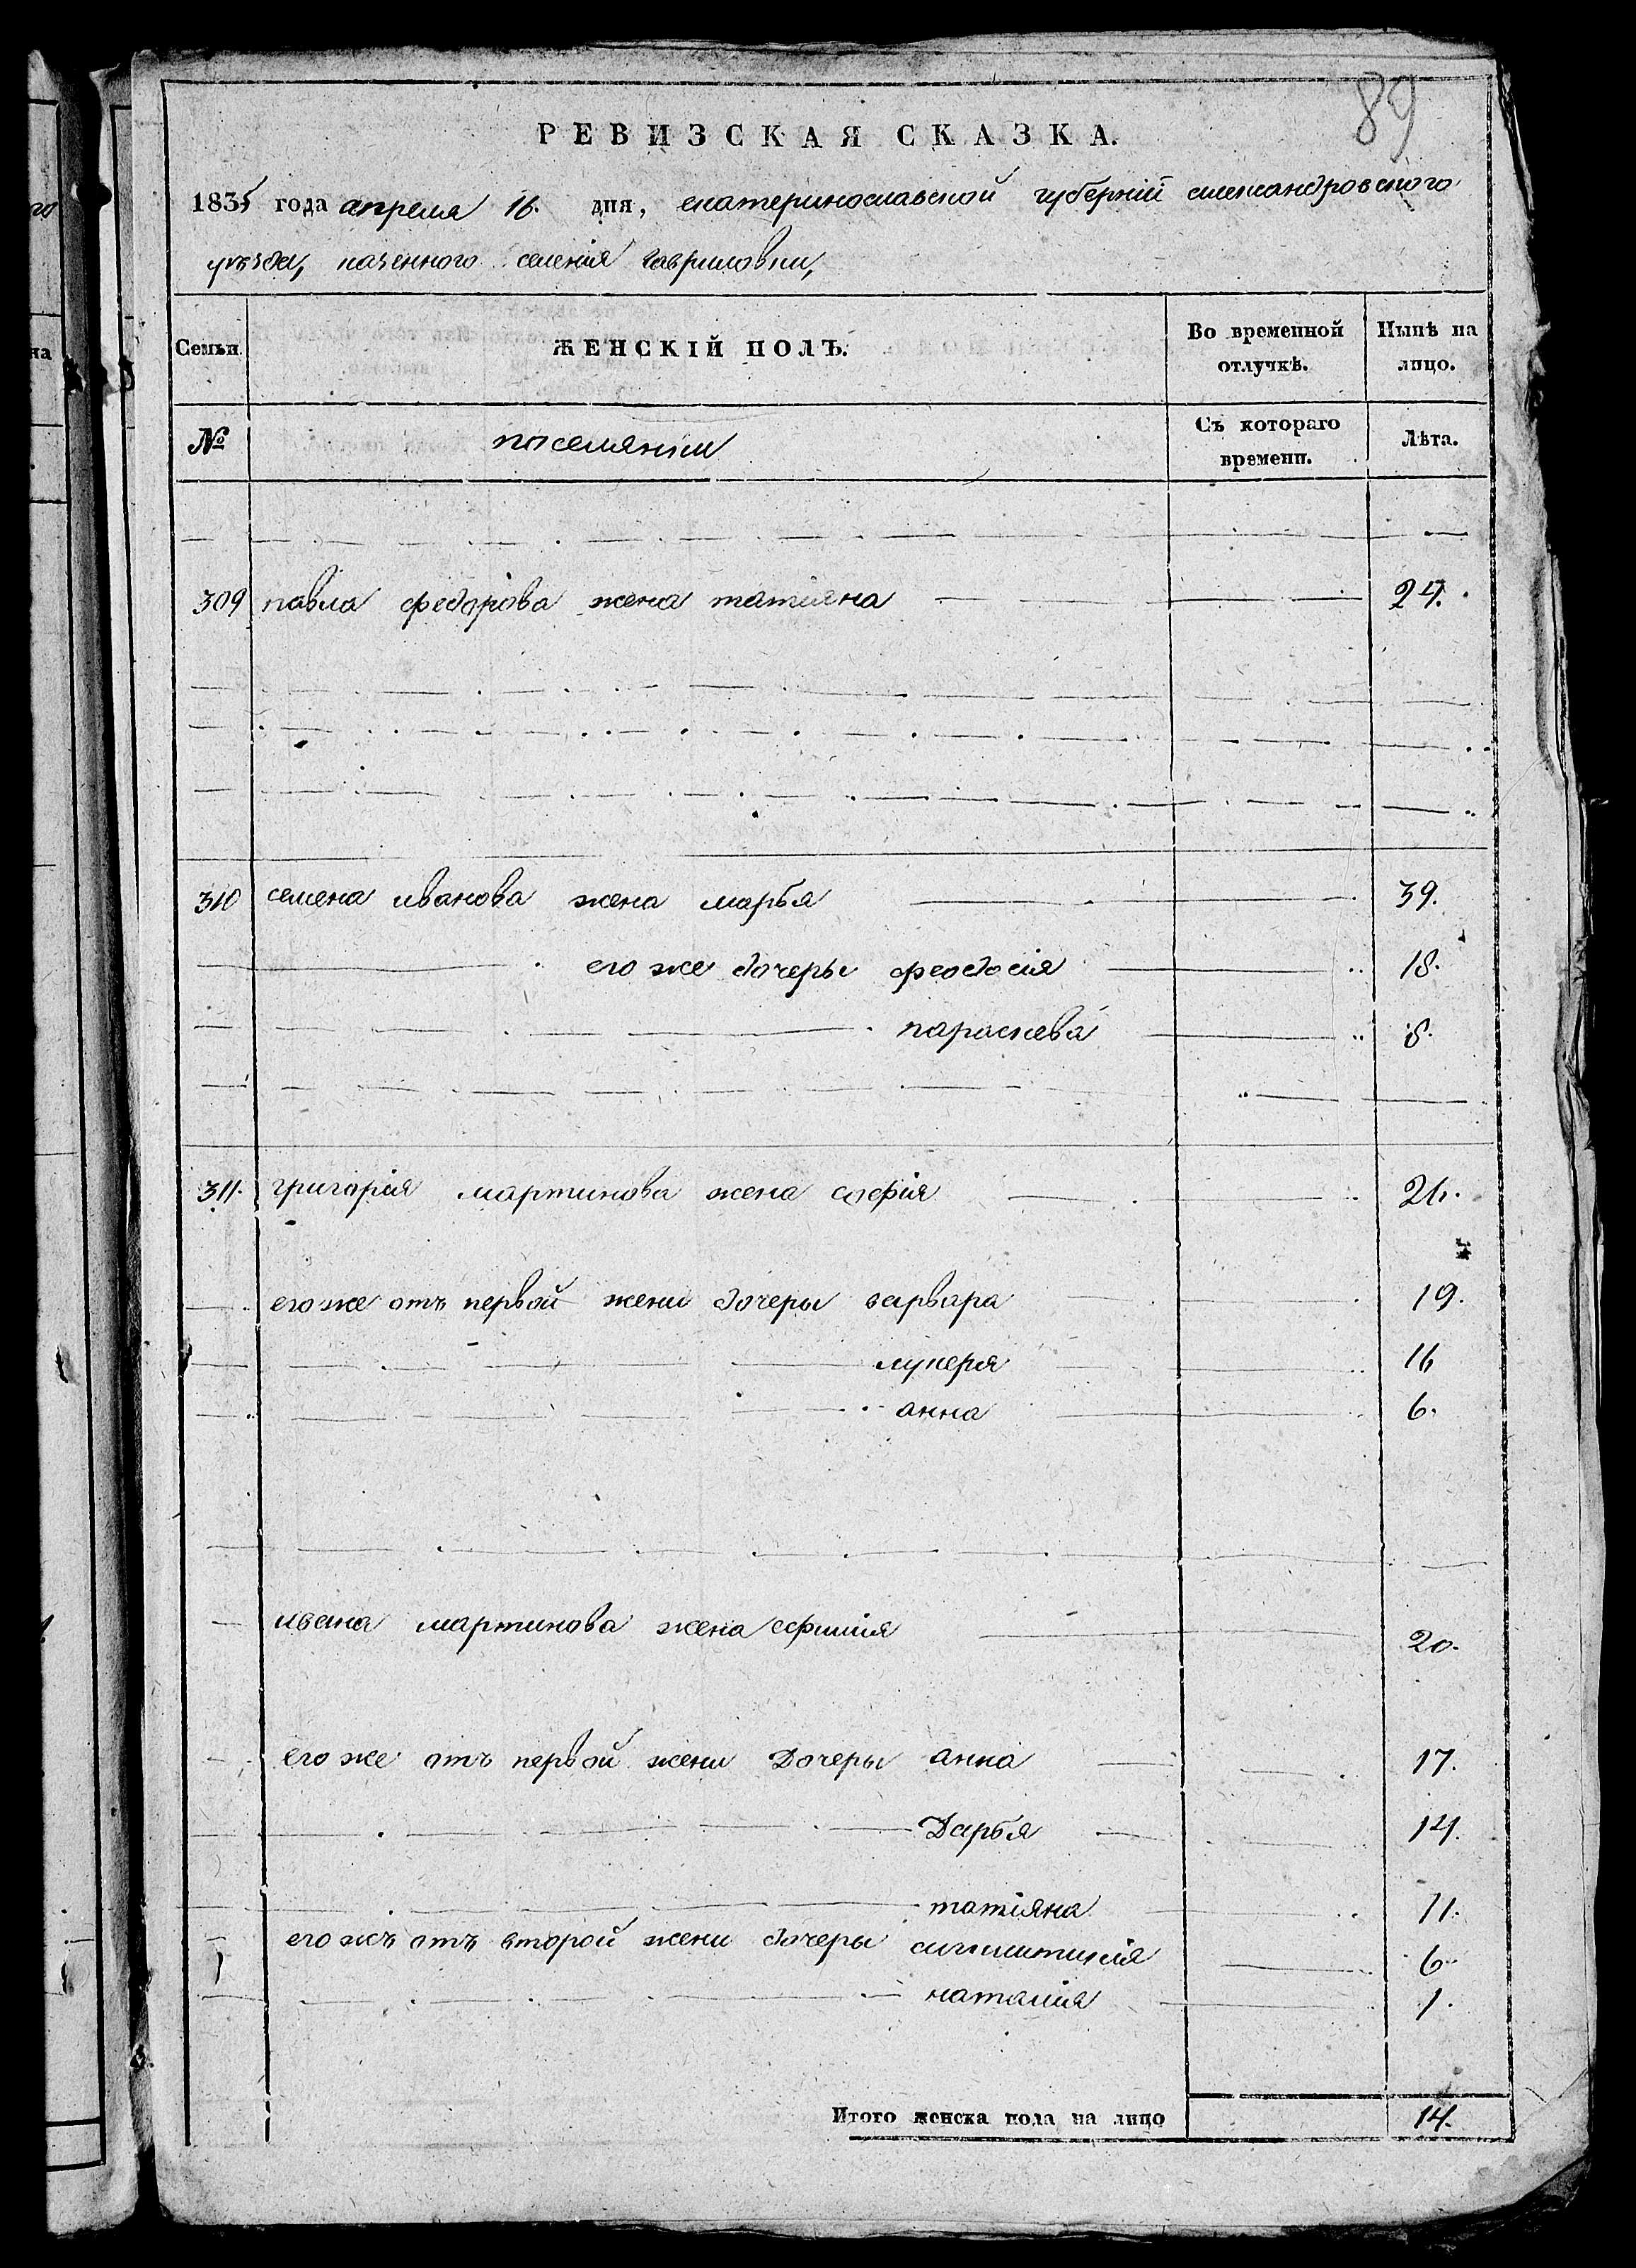 89
РЕВИЗСКАЯ СКАЗКА.
1835 года апреля 16. дня, екатеринославской губерніи александровского
уезда, казенного селенія гавриловки,
Семьи.
ЖЕНСКІЙ ПОЛЪ.
Во временной отлучкѣ.
Нынѣ на лицо.
№
поселяніи
Съ котораго времени.
Лѣта.
309 павла федорова жена татіяна 24.
310 семена иванова жена марья 39.
его же дочеры феодосія 18.
параскева 8.
311. григорія мартинова жена софія 26.
его же отъ первой жени дочеры варвара 19.
лукеря 16
анна 6.
ивана мартинова жена ефимія 20.
его же отъ первой жени Дочеры анна 17.
Дарья 14.
татіяна 11.
его жъ отъ второй жени дочеры 6.
наталія 1.
Итого женска пола на лицо 14.